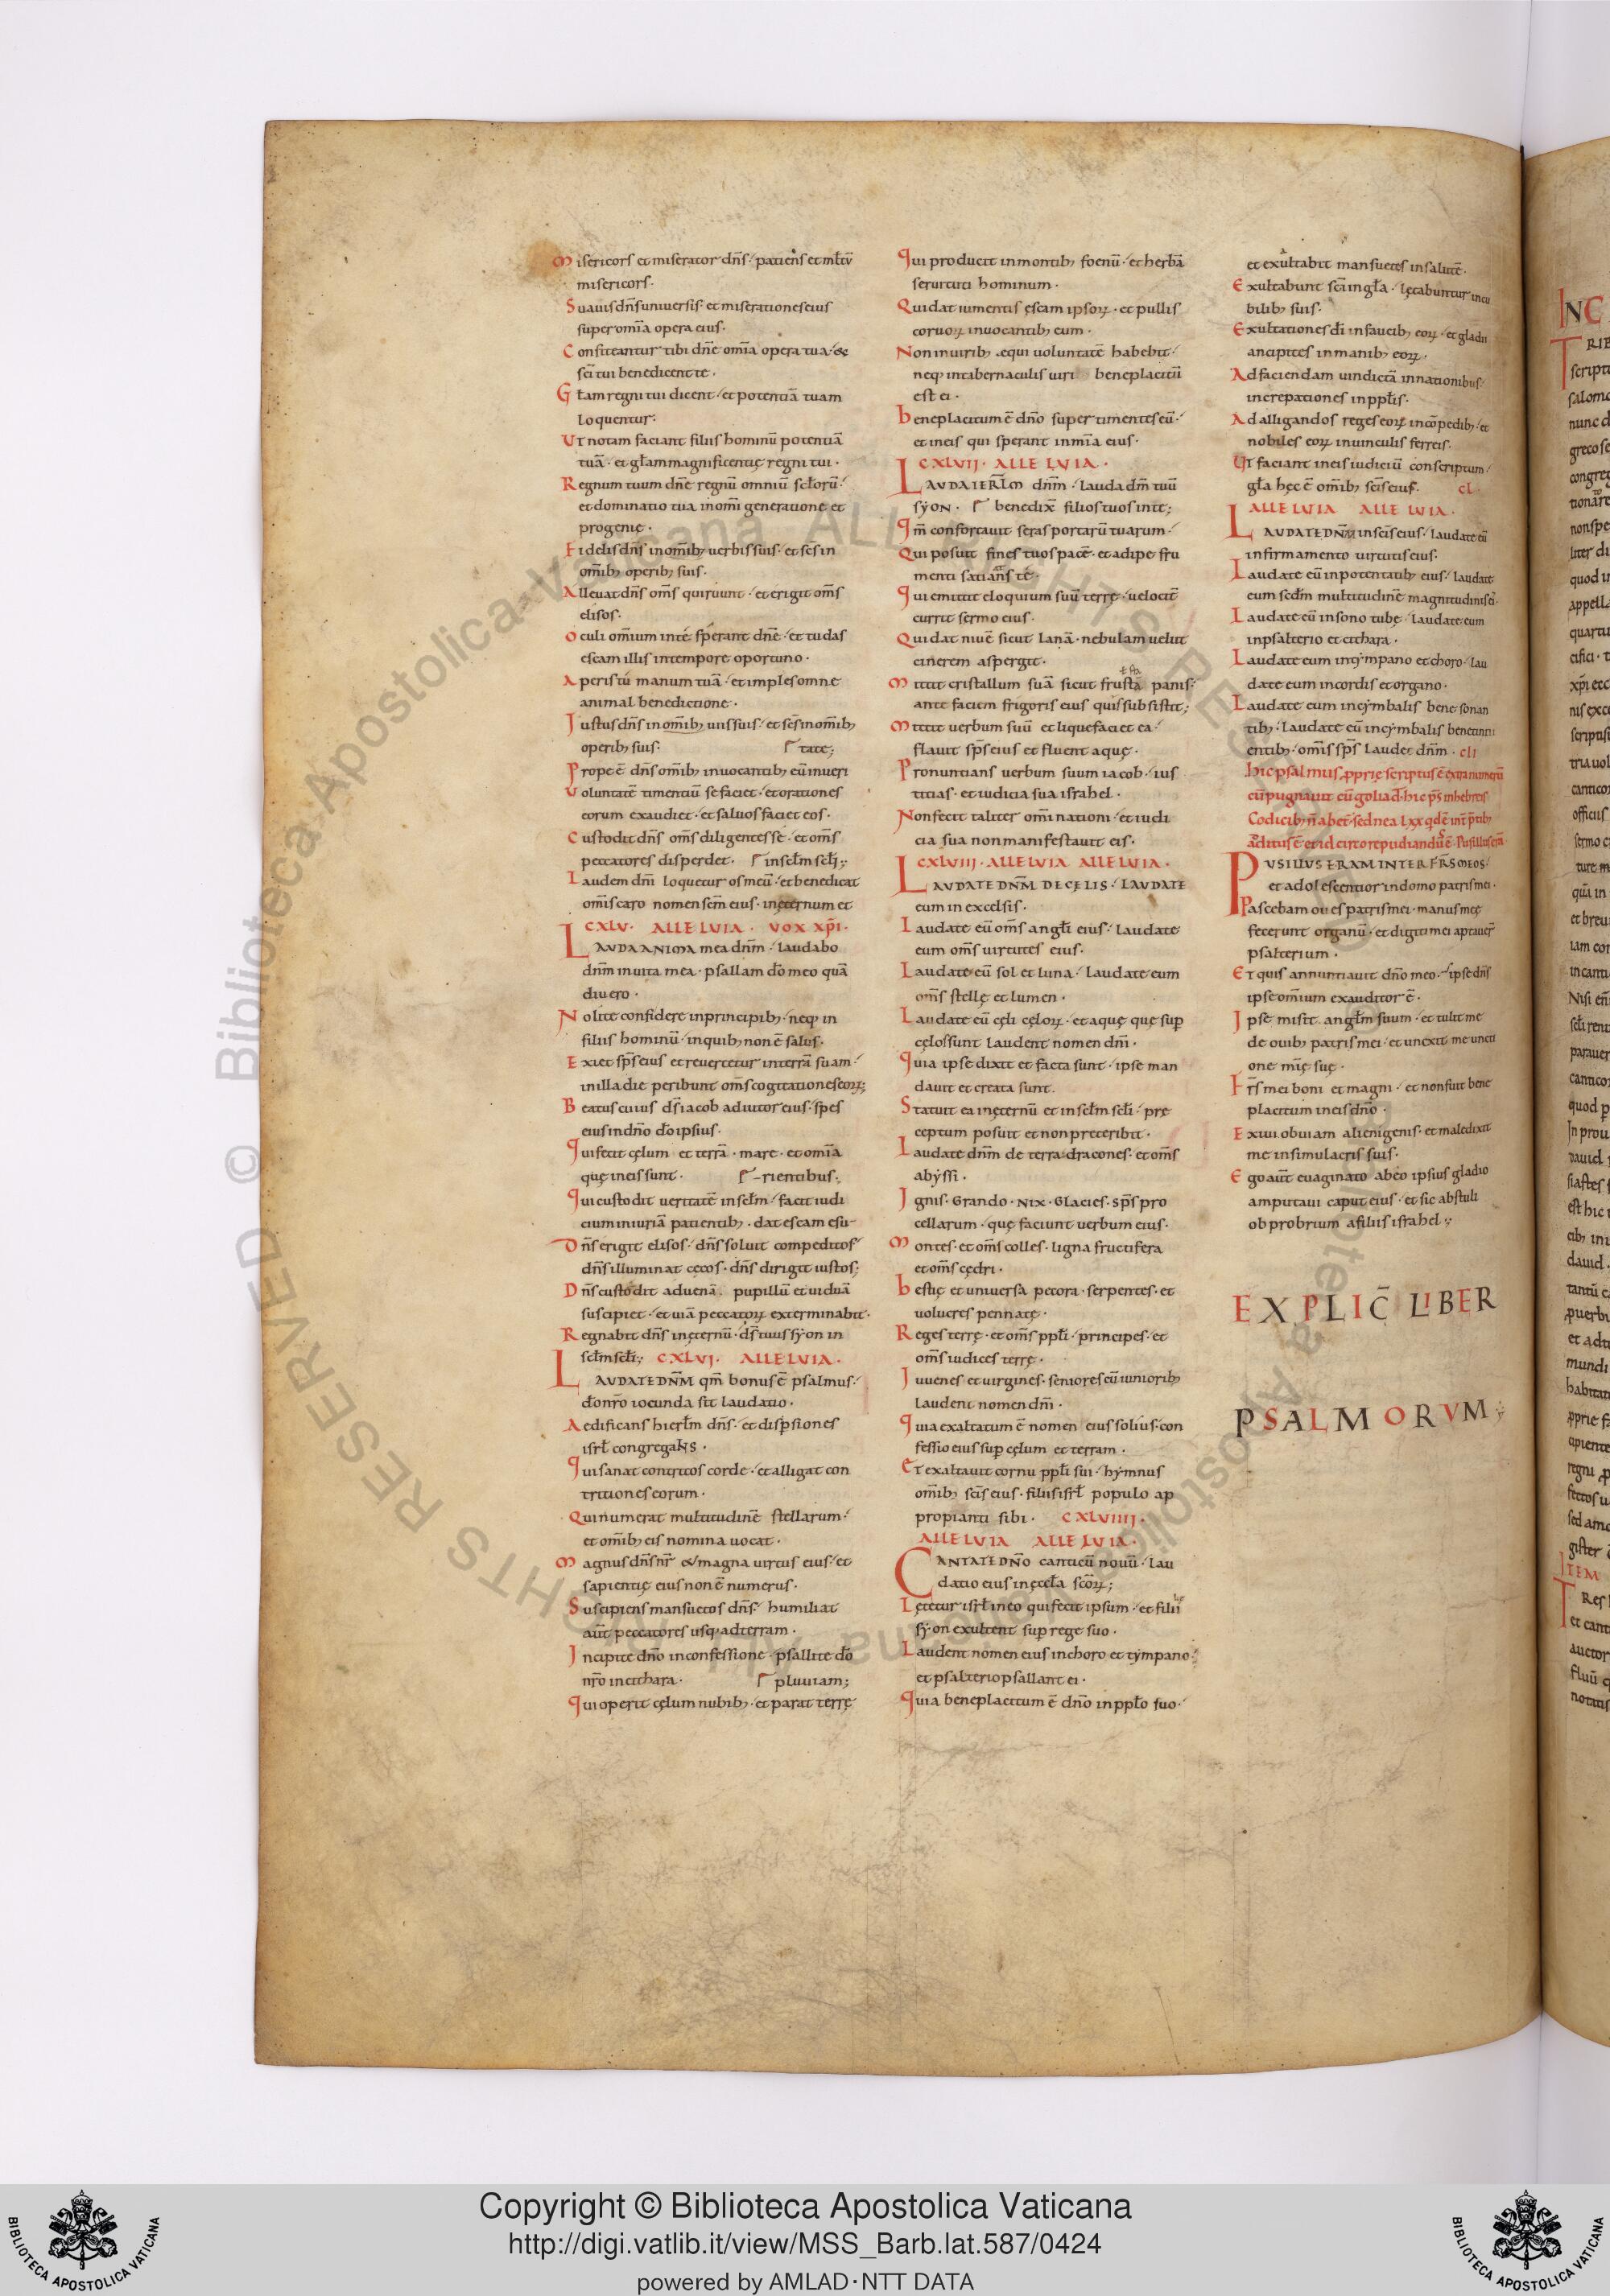 Misericors et miserator dn̄s · patiens et mł̄tū
misericors ·
Suauis dn̄s uniuersis · et miserationes eius
super om̄ia opera eius ·
Confiteantur tibi dn̄e om̄ia opera tua · &
sc̄i tui benedicent te ·
Głam regni tui dicent · et potentiā tuam
loquentur ·
Ut notam faciant filiis hominū potentiā
tuā · et głam magnificentię regni tui ·
Regnum tuum dn̄e regnū omniū scłorū ·
et dominatio tua in om̄i generatione et
progenię ·
Fidelis dn̄s in om̄ib; uerbis suis · et sc̄s in
om̄ib; operib; suis ·
Alleuat dn̄s om̄s qui ruunt · et erigit om̄s
elisos ·
Oculi om̄ium in te sperant dn̄e · et tu das
escam illis in tempore oportuno ·
Aperis tu manum tuā · et imples omne
animal benedictione ·
Iustus dn̄s in om̄ib; uiis suis · et sc̄s in om̄ib;
operib; suis · tate;
Prope ē dn̄s om̄ib; inuocantib; eū in ueri
Voluntatē timentiū se faciet · et orationes
eorum exaudiet · et saluos faciet eos ·
Custodit dn̄s om̄s diligentes se · et om̄s
peccatores disperdet · in scłm scłi;
Laudem dn̄i loquetur os meū · et benedicat
om̄is caro nomen sc̄m eius · in ęternum et
CXLV · ALLELUIA · VOX XP̄I ·
LAUDA ANIMA mea dn̄m · laudabo
dn̄m in uita mea · psallam dō meo quā
diu ero ·
Nolite confidere in principib; · neq; in
filiis hominū · in quib; non ē salus ·
Exiet sp̄s eius et reuertetur in terrā suam ·
in illa die peribunt om̄s cogitationes eoꝝ;
Beatus cuius dś iacob adiutor eius · spes
eius in dn̄o dō ipsius ·
Qui fecit cęlum et terrā · mare · et om̄ia
quę in eis sunt · rientibus;
Qui custodit ueritatē in scłm · facit iudi
cium iniuriā patientib; · dat escam esu
Dn̄s erigit elisos · dn̄s soluit compeditos
dn̄s illuminat cęcos · dn̄s dirigit iustos;
Dn̄s custodit aduenā · pupillū et uiduā
suscipiet · et uiā peccatoꝝ exterminabit ·
Regnabit dn̄s in ęternū · dś tuus syon in
scłm scłi; CXLVI · ALLELUIA ·
LAUDATE DN̄M qm̄ bonus ē psalmus ·
dō nr̄o iocunda sit laudatio ·
Aedificans hierłm dn̄s · et dispersiones
isrł congregans ·
Qui sanat contritos corde · et alligat con
tritiones eorum ·
Qui numerat multitudinē stellarum ·
et om̄ib; eis nomina uocat ·
Magnus dn̄s nr̄ & magna uirtus eius · et
sapientię eius non ē numerus ·
Suscipiens mansuetos dn̄s · humiliat
aūt peccatores usq; ad terram ·
Incipite dn̄o in confessione · psallite dō
nr̄o in cithara · pluuiam;
Qui operit cęlum nubib; · et parat terrę
Qui producit in montib; foenū · et herbā
seruituti hominum ·
Qui dat iumentis ęscam ipsoꝝ · et pullis
coruoꝝ inuocantib; eum ·
Non in uirib; equi uoluntatē habebit ·
neq; in tabernaculis uiri beneplacitū
est ei ·
Beneplacitum ē dn̄o super timentes eū ·
et in eis qui sperant in m̄ia eius ·
CXLVII · ALLELUIA ·
LAUDA IERŁM dn̄m · lauda dm̄ tuū
syon · benedix̄ filios tuos in te;
Qm̄ confortauit seras portarū tuarum ·
Qui posuit fines tuos pacē · et adipe fru
menti satians te ·
Qui emittit eloquium suū terrę · uelocit̄
currit sermo eius ·
Qui dat niuē sicut lanā · nebulam uelut
cinerem aspergit ·
Mittit cristallum suā sicut frusta panis ·
ante faciem frigoris eius quis subsistit;
Mittit uerbum suū et liquefaciet ea ·
flauit sp̄s eius et fluent aquę ·
Pronuntians uerbum suum iacob · ius
titias · et iudicia sua israhel ·
Non fecit taliter om̄i nationi · et iudi
cia sua non manifestauit eis ·
CXLVIII · ALLELUIA ALLELUIA ·
LAUDATE DN̄M DE CĘLIS · LAUDATE
eum in excelsis ·
Laudate eū om̄s angłi eius · laudate
eum om̄s uirtutes eius ·
Laudate eū sol et luna · laudate eum
om̄s stellę et lumen ·
Laudate eū cęli cęloꝝ · et aquę quę sup
cęlos sunt laudent nomen dn̄i ·
Quia ipse dixit et facta sunt · ipse man
dauit et creata sunt ·
Statuit ea in ęternū et in scłm scłi · pre
ceptum posuit et non preteribit ·
Laudate dn̄m de terra · dracones · et om̄s
abyssi ·
Ignis · Grando · Nix · Glacies · sp̄s pro
cellarum · quę faciunt uerbum eius ·
Montes · et om̄s colles · ligna fructifera
et om̄s cędri ·
Bestię et uniuersa pecora · serpentes · et
uolucres pennatę ·
Reges terrę · et om̄s pp̄łi · principes · et
om̄s iudices terrę ·
Iuuenes et uirgines · seniores cū iuniorib;
laudent nomen dn̄i ·
Quia exaltatum ē nomen eius solius · con
fessio eius sup cęlum et terram ·
Et exaltauit cornu pp̄łi sui · hymnus
om̄ib; sc̄is eius · filiis isrł populo ap
propianti sibi · CXLVIIII ·
ALLELUIA ALLELUIA ·
CANTATE DN̄O canticū nouū · lau
datio eius in ęccła sc̄oꝝ;
Lętetur isrł in eo qui fecit ipsum · et filii
syon exultent sup rege suo ·
Laudent nomen eius in choro et tympano ·
et psalterio psallant ei ·
Quia beneplacitum ē dn̄o in pp̄ło suo ·
et exultabit mansuetos in salutē ·
Exultabunt sc̄i in głа · lętabuntur in cu
bilib; suis ·
Exultationes dī in faucib; eoꝝ · et gladii
ancipites in manib; eoꝝ ·
Ad faciendam uindictā in nationibus ·
increpationes in pp̄łis ·
Ad alligandos reges eoꝝ in cōpedib; · et
nobiles eoꝝ in uinculis ferreis ·
Ut faciant in eis iudiciū conscriptum ·
gła hęc ē om̄ib; sc̄is eius · cl
ALLELUIA ALLELUIA ·
LAUDATE DN̄M in sc̄is eius · laudate eū
in firmamento uirtutis eius ·
Laudate eū in potentatib; eius · laudate
eum scdm̄ multitudinē magnitudinis ei ·
Laudate eū in sono tubę · laudate eum
in psalterio et cithara ·
Laudate eum in tympano et choro · lau
date eum in cordis et organo ·
Laudate eum in cymbalis bene sonan
tib; · laudate eū in cymbalis
entib; · om̄is sp̄s laudet dn̄m · cli
hic psalmus pprię scriptus ē extra numerū
cū pugnauit cū goliad · hic ps̄ in hebreis
Codicib; n̄ abet · sed nec a lxx
additus ē et id circo repudiandus ē · Pusillus erā
PUSILLUS ERAM INTER FR̄S MEOS ·
et adolescentior in domo patris mei ·
Pascebam oues patris mei · manus meę
fecerunt organū · et digiti mei aptauer̄
psalterium ·
Et quis annuntiauit dn̄o meo · ipse dn̄s
ipse om̄ium exauditor ē ·
Ipse misit angłm suum · et tulit me
de ouib; patris mei · et unexit me uncti
one mię suę ·
Fr̄s mei boni et magni · et non fuit bene
placitum in eis dn̄o ·
Exiui obuiam alienigenis · et maledixit
me in simulacris suis ·
Ego aūt euaginato ab eo ipsius gladio
amputaui caput eius · et sic abstuli
obprobrium a filiis israhel ;
EXPLIC̄ LIBER
PSALMORVM ;
INC
Copyright © Biblioteca Apostolica Vaticana
http://digi.vatlib.it/view/MSS_Barb.lat.587/0424
powered by AMLAD·NTT DATA
BIBLIOTECA APOSTOLICA VATICANA
BIBLIOTECA APOSTOLICA VATICANA